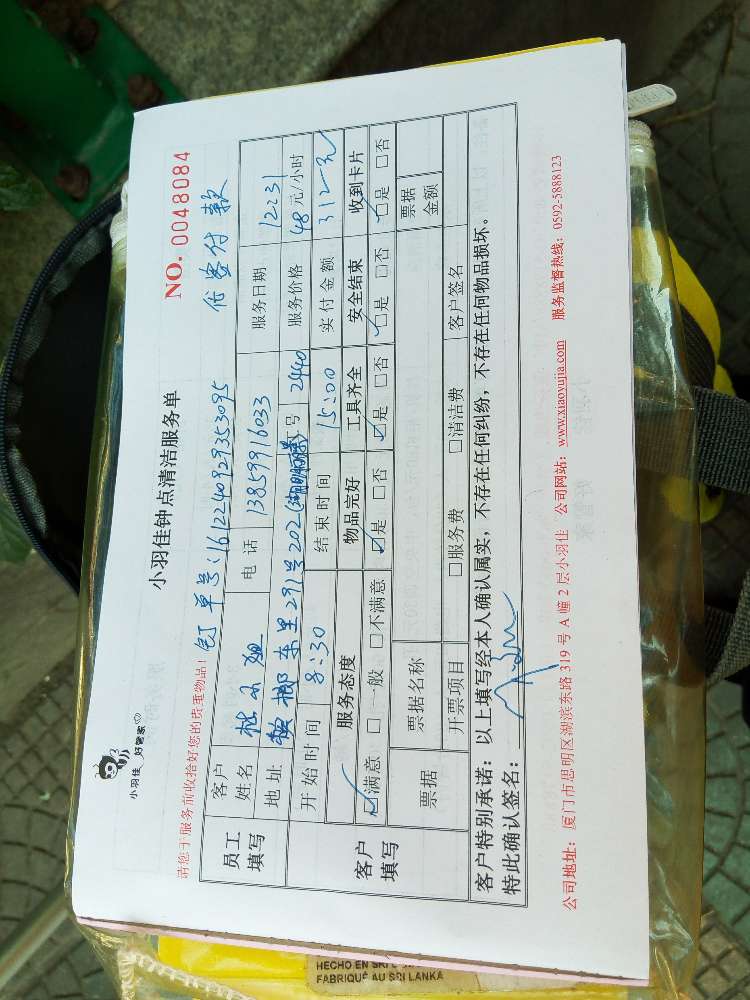 小羽佳 好管家
小羽佳钟点清洁服务单
NO. 0048084
请您于服务前收拾好您的贵重物品!
订单号:1612240929353095 付款
员工填写
客户姓名 林小姐 电话 13859916033 服务日期 12.31
地址 槟榔东里291号202 工号 2440 服务价格 48元/小时
客户填写
开始时间 8:30 结束时间 15:00 实付金额 312元
服务态度 物品完好 工具齐全 安全结束 收到卡片
☑满意 □一般 □不满意 ☑是 □否 ☑是 □否 ☑是 □否 ☑是 □否
票据 票据名称 票据金额
开票项目 □服务费 □清洁费 客户签名
客户特别承诺:以上填写经本人确认属实,不存在任何纠纷,不存在任何物品损坏。
特此确认签名:
公司地址:厦门市思明区湖滨东路 319 号 A 幢 2 层小羽佳 公司网站:www.xiaoyujia.com 服务监督热线:0592-5888123
HECHO EN SRI LANKA
FABRIQUE AU SRI LANKA